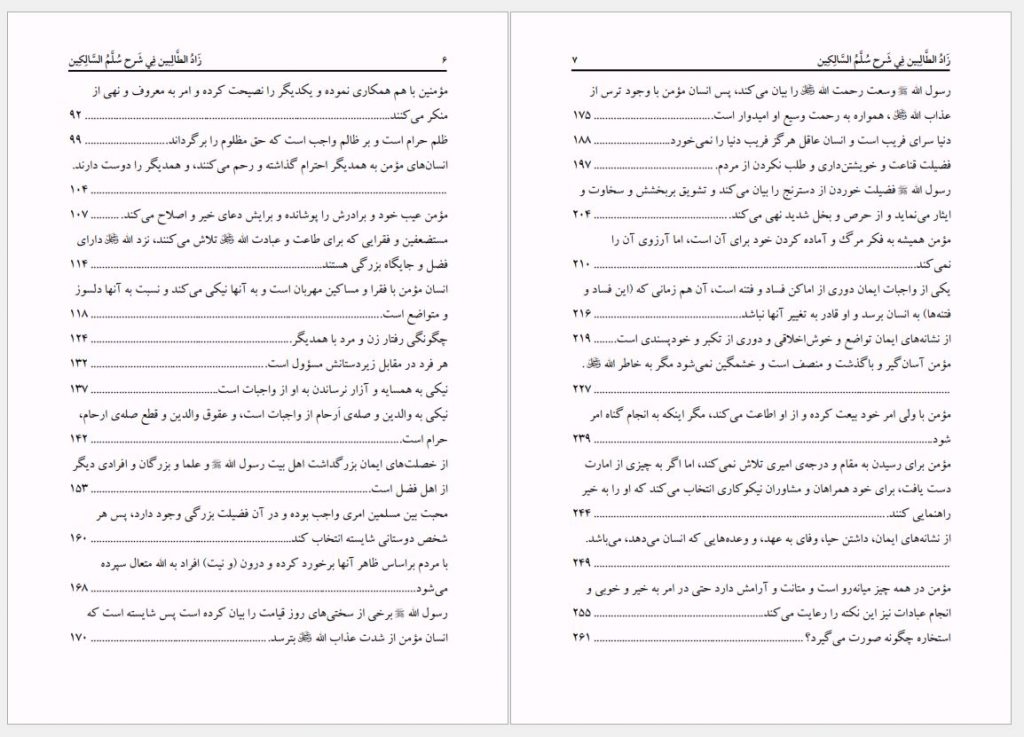 ۶ زَادُ الطَّالِبِين فِي شَرح سُلَّمُ السَّالِكِين
مؤمنین با هم همکاری نموده و یکدیگر را نصیحت کرده و امر به معروف و نهی از
منکر می‌کنند. ۹۲
ظلم حرام است و بر ظالم واجب است که حق مظلوم را برگرداند. ۹۹
انسان‌های مؤمن به همدیگر احترام گذاشته و رحم می‌کنند، و همدیگر را دوست دارند.
۱۰۴
مؤمن عیب خود و برادرش را پوشانده و برایش دعای خیر و اصلاح می‌کند. ۱۰۷
مستضعفین و فقرایی که برای طاعت و عبادت الله ﷻ تلاش می‌کنند، نزد الله ﷻ دارای
فضل و جایگاه بزرگی هستند. ۱۱۴
انسان مؤمن با فقرا و مساکین مهربان است و به آنها نیکی می‌کند و نسبت به آنها دلسوز
و متواضع است. ۱۱۸
چگونگی رفتار زن و مرد با همدیگر. ۱۲۴
هر فرد در مقابل زیردستانش مسؤول است. ۱۳۲
نیکی به همسایه و آزار نرساندن به او از واجبات است. ۱۳۷
نیکی به والدین و صله‌ی اَرحام از واجبات است، و عقوق والدین و قطع صله‌ی ارحام،
حرام است. ۱۴۲
از خصلت‌های ایمان بزرگداشت اهل بیت رسول الله ﷺ و علما و بزرگان و افرادی دیگر
از اهل فضل است. ۱۵۳
محبت بین مسلمین امری واجب بوده و در آن فضیلت بزرگی وجود دارد، پس هر
شخص دوستانی شایسته انتخاب کند. ۱۶۰
با مردم براساس ظاهر آنها برخورد کرده و درون (و نیت) افراد به الله متعال سپرده
می‌شود. ۱۶۸
رسول الله ﷺ برخی از سختی‌های روز قیامت را بیان کرده است پس شایسته است که
انسان مؤمن از شدت عذاب الله ﷻ بترسد. ۱۷۰
زَادُ الطَّالِبِين فِي شَرح سُلَّمُ السَّالِكِين ۷
رسول الله ﷺ وسعت رحمت الله ﷻ را بیان می‌کند، پس انسان مؤمن با وجود ترس از
عذاب الله ﷻ، همواره به رحمت وسیع او امیدوار است. ۱۷۵
دنیا سرای فریب است و انسان عاقل هرگز فریب دنیا را نمی‌خورد. ۱۸۸
فضیلت قناعت و خویشتن‌داری و طلب نکردن از مردم. ۱۹۷
رسول الله ﷺ فضیلت خوردن از دسترنج را بیان می‌کند و تشویق بربخشش و سخاوت و
ایثار می‌نماید و از حرص و بخل شدید نهی می‌کند. ۲۰۴
مؤمن همیشه به فکر مرگ و آماده کردن خود برای آن است، اما آرزوی آن را
نمی‌کند. ۲۱۰
یکی از واجبات ایمان دوری از اماکن فساد و فتنه است، آن هم زمانی که (این فساد و
فتنه‌ها) به انسان برسد و او قادر به تغییر آنها نباشد. ۲۱۶
از نشانه‌های ایمان تواضع و خوش‌اخلاقی و دوری از تکبر و خودپسندی است. ۲۱۹
مؤمن آسان‌گیر و باگذشت و منصف است و خشمگین نمی‌شود مگر به خاطر الله ﷻ.
۲۲۷
مؤمن با ولی امر خود بیعت کرده و از او اطاعت می‌کند، مگر اینکه به انجام گناه امر
شود. ۲۳۹
مؤمن برای رسیدن به مقام و درجه‌ی امیری تلاش نمی‌کند، اما اگر به چیزی از امارت
دست یافت، برای خود همراهان و مشاوران نیکوکاری انتخاب می‌کند که او را به خیر
راهنمایی کنند. ۲۴۴
از نشانه‌های ایمان، داشتن حیا، وفای به عهد، و وعده‌هایی که انسان می‌دهد، می‌باشد.
۲۴۹
مؤمن در همه چیز میانه‌رو است و متانت و آرامش دارد حتی در امر به خیر و خوبی و
انجام عبادات نیز این نکته را رعایت می‌کند. ۲۵۵
استخاره چگونه صورت می‌گیرد؟ ۲۶۱